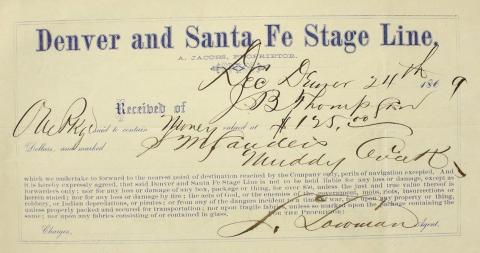 Denver and Santa Fe Stage Line,
A. JACOBS, PROPRIETOR.
Dec Denver 24th 1869
Received of J B Thompson
One Pkg said to contain Money valued at $125.00
Dollars, and marked
Muddy Creek
which we undertake to forward to the nearest point of destination reached by the Company only, perils of navigation excepted, And
it is hereby expressly agreed, that said Denver and Santa Fe Stage Line is not to be held liable for any loss or damage, except as
forwarders only; nor for any loss or damage of any box, package or thing, for over $50, unless the just and true value thereof is
herein stated; nor for any loss or damage by fire; the acts of God, or the enemies of the government, mobs, riots, insurrections or
robbery, or Indian depredations, or pirates; or from any of the dangers incident to a time of war, nor upon any property or thing,
unless properly packed and secured for transportation; nor upon fragile fabrics, unless so marked upon the package containing the
same; nor upon any fabrics consisting of or contained in glass.
FOR THE PROPRIETOR:
Charges, J. Lowman Agent.